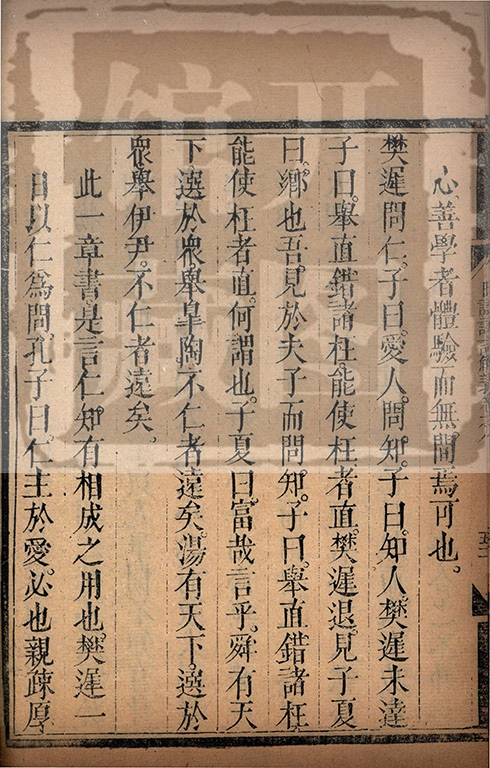 心善學者體驗而無間焉可也。
樊遲問仁。子曰。愛人。問知。子曰。知人。樊遲未達
子曰。舉直錯諸枉能使枉者直。樊遲退。見子夏
曰。鄉也吾。見於夫子而問。知。子曰。舉直錯諸枉
能使枉者直。何謂也。子夏曰富哉言乎。舜有天
下。選於衆。舉臯陶。不仁者遠矣。湯有天下。選於
衆。舉伊尹。不仁者遠矣。
此一章書。是言仁。知有相成之用也。樊遲一
日以仁為問。孔子曰。仁主於愛。必也親疎厚